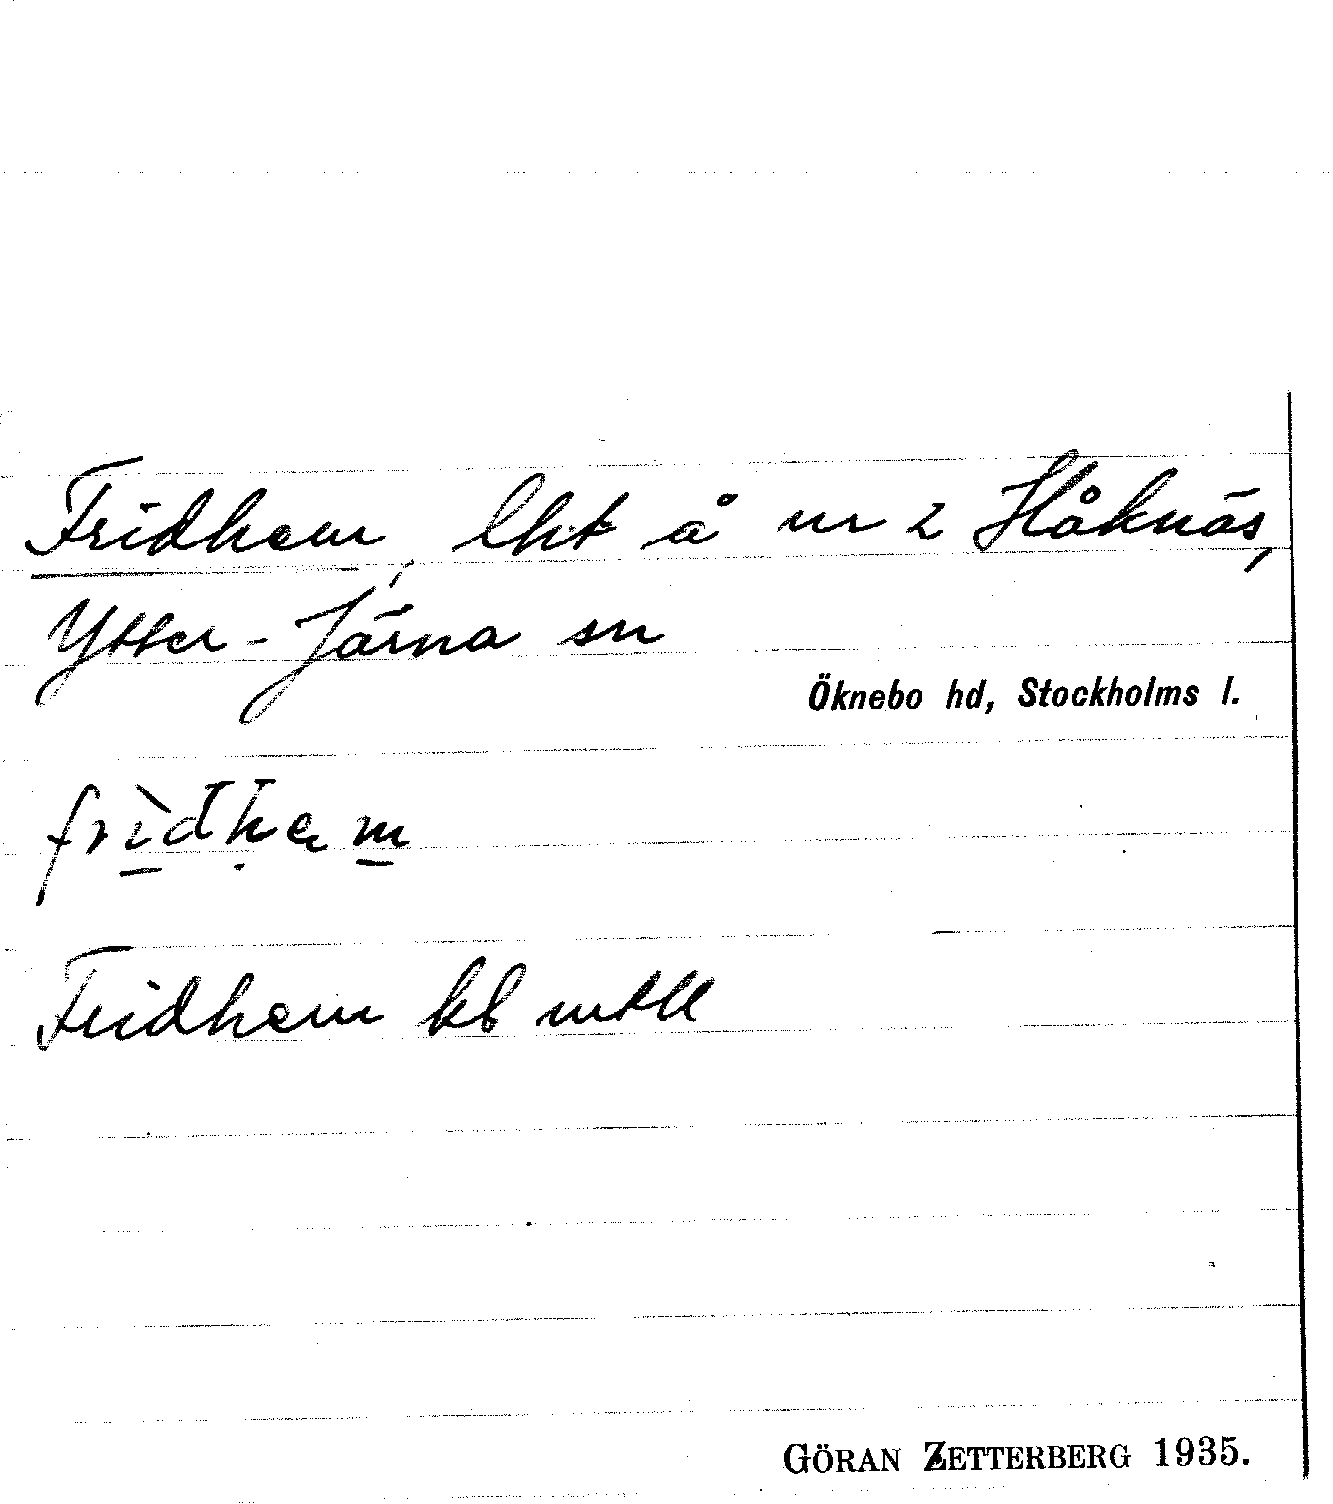 Fridhem, lht å nr 2 Håknäs,
Ytter-Järna sn
Öknebo hd, Stockholms l.
frìdhem
Fridhem kb mtll
GÖRAN ZETTERBERG 1935.